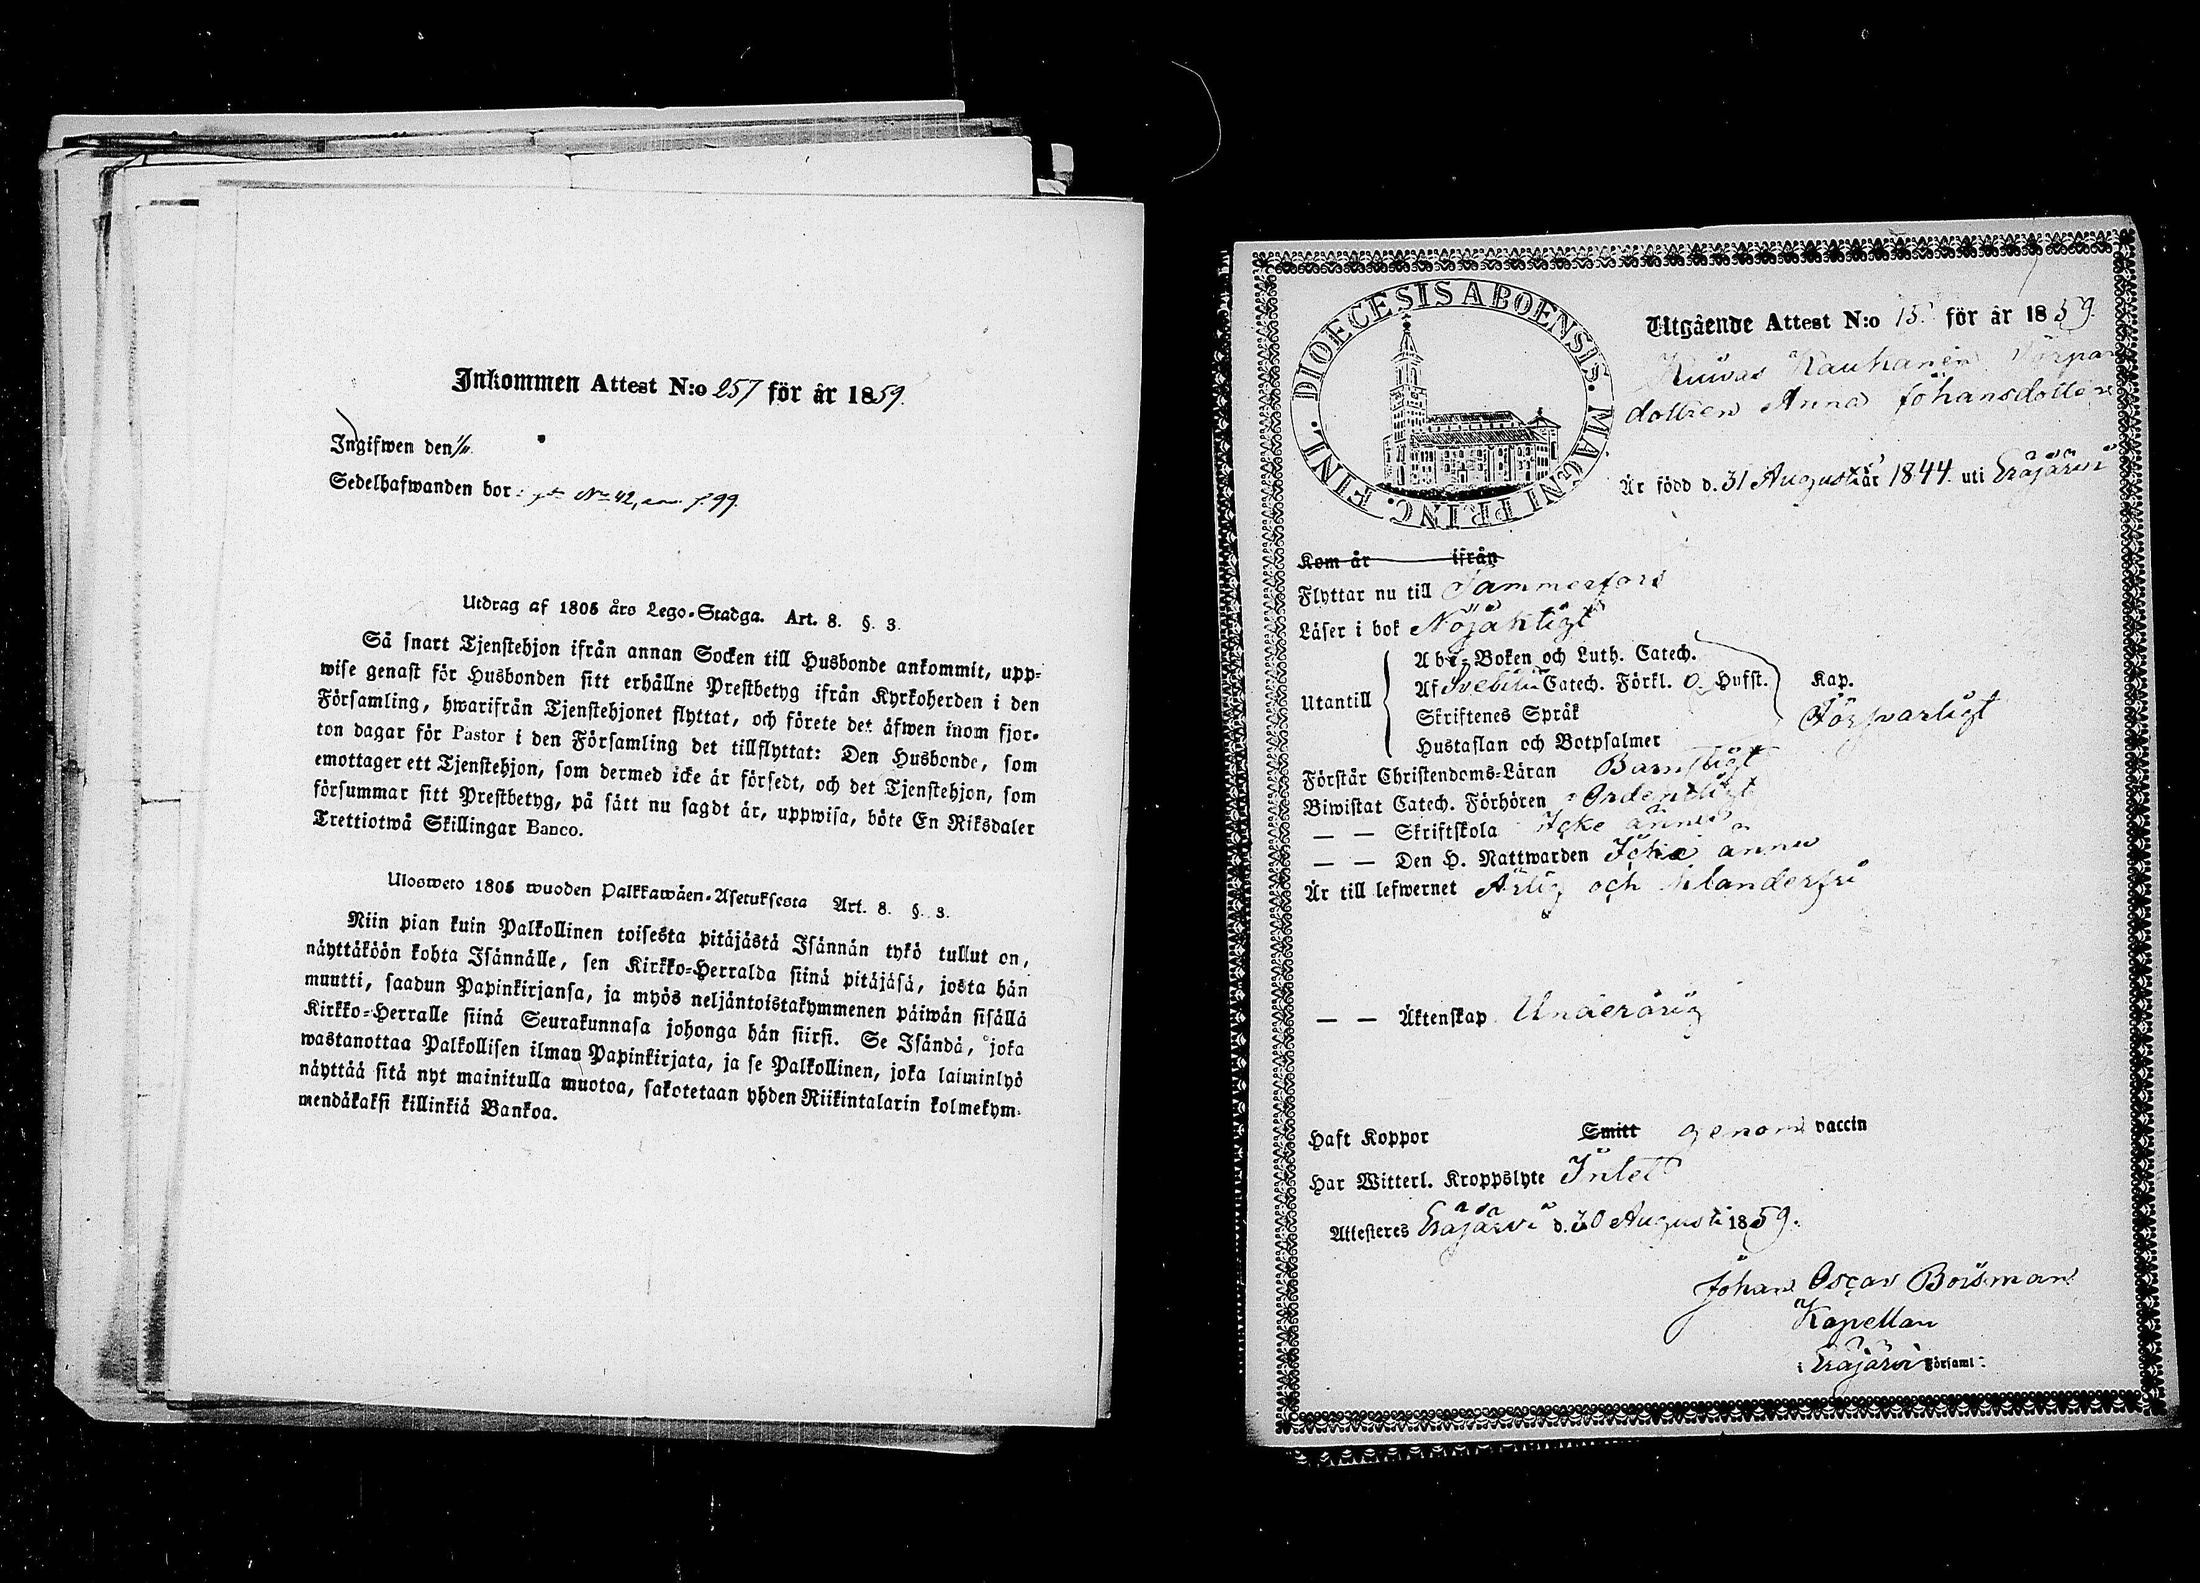 Inkommen Attest N:o 257 för år 1859.
Ingifwen den 1/11
Sedelhafwanden bor i N:o 42, p. 99.
Utdrag af 1805 års Lego-Stadga. Art. 8. §. 3.
Så snart Tjenstehjon ifrån annan Socken till Husbonde ankommit, upp-
wise genast för Husbonden sitt erhållne Prestbetyg ifrån Kyrkoherden i den
Församling, hwarifrån Tjenstehjonet flyttat, och förete det äfwen inom fjor-
ton dagar för Pastor i den Församling det tillflyttat: Den Husbonde, som
emottager ett Tjenstehjon, som dermed icke är försedt, och det Tjenstehjon, som
försummar sitt Prestbetyg, på sätt nu sagdt är, uppwisa, böte En Riksdaler
Trettiotwå Skillingar Banco.
Ulosweto 1805 wuoden Palkkawäen-Asetuksesta Art. 8. §. 3.
Niin pian kuin Palkollinen toisesta pitäjästä Isännän tykö tullut on,
näyttäköön kohta Isännälle, sen Kirkko-Herralda siinä pitäjäsä, josta hän
muutti, saadun Papinkirjansa, ja myös neljäntoistakymmenen päiwän sisällä
Kirkko-Herralle siinä Seurakunnasa johonga hän siirsi. Se Isändä, joka
wastanottaa Palkollisen ilman Papinkirjata, ja se Palkollinen, joka laiminlyö
näyttää sitä nyt mainitulla muotoa, sakotetaan yhden Riikintalarin kolmekym-
mendäkaksi killinkiä Bankoa.
DIOECESIS ABOENSIS. MAGNI PRINC. FINL.
Utgående Attest N:o 15. för år 1859.
Rauhanen Torpar
dottren Anna Johansdotter
Är född d. 31 Augusti år 1844. uti Eräjärvi
Kom år ifrån
Flyttar nu till Tammerfors
Läser i bok Nöjaktigt
Utantill
Abc-Boken och Luth. Catech.
Af Svebilii Catech. Förkl. o. Hufst. Kap.
Skriftenes Språk Försvarligt
Hustaflan och Botpsalmer
Förstår Christendoms-Läran Barnsligt
Biwistat Catech. Förhören Ordentligt
— — Skriftskola Icke ännu
— — Den H. Nattwarden Icke ännu
Är till lefwernet Ärlig och klanderfri
— — Äktenskap Underårig
Haft Koppor Smitt genom vaccin
Har Witterl. Kroppslyte Intet
Attesteres Eräjärvi d. 30 Augusti 1859.
Johan Oscar Boisman
Kapellan
i Eräjärvi Församl: